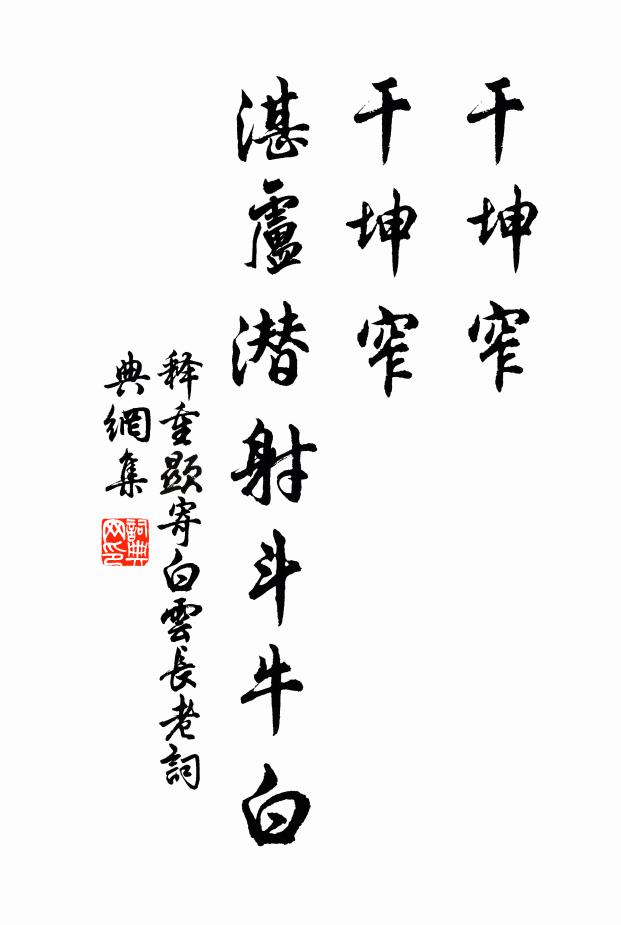 干坤窄
干坤窄
湛盧潜射斗牛白
释重顯寄白雲長老詞
典網集
詞典
网印